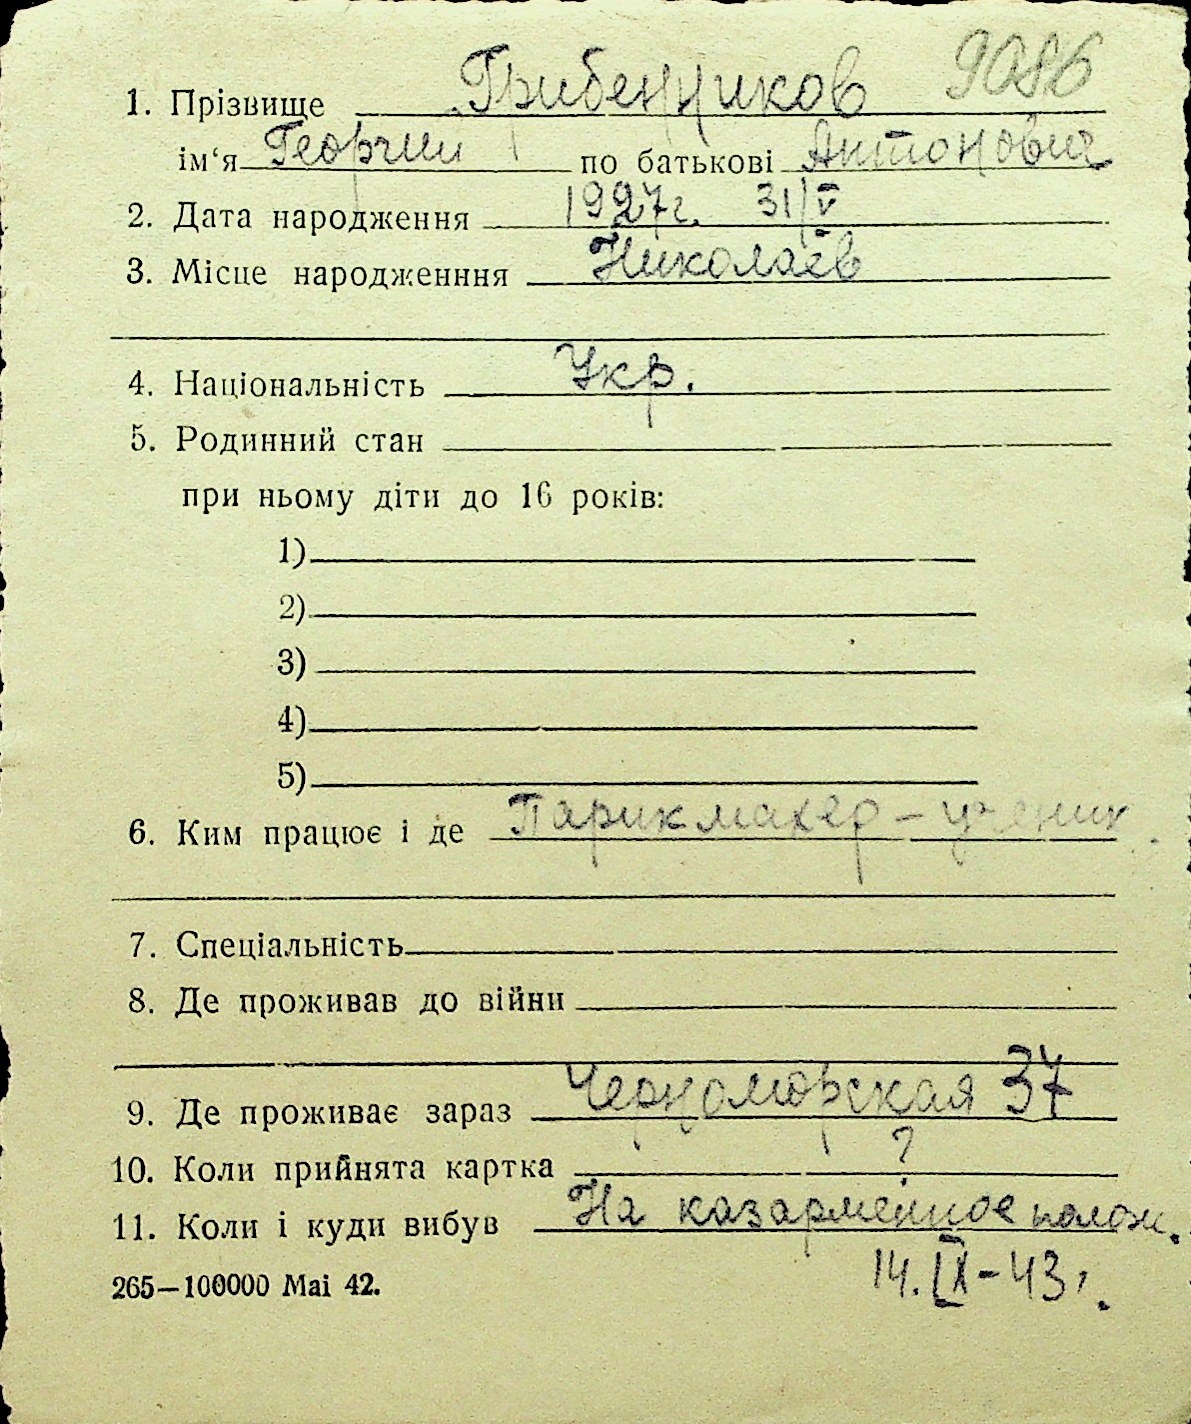 9086
1. Прізвище Грибенников
ім‘я Георгий по батькові Антонович
2. Дата народження 1927г. 31/V
3. Місце народженння Николаев
4. Національність Укр.
5. Родинний стан
при ньому діти до 16 років:
1)
2)
3)
4)
5)
6. Ким працює і де Парикмахер – ученик
7. Спеціальність
8. Де проживав до війни
9. Де проживає зараз Черноморская 37
10. Коли прийнята картка ?
11. Коли і куди вибув На казарменное полож.
265—100000 Mai 42. 14. IX - 43г.